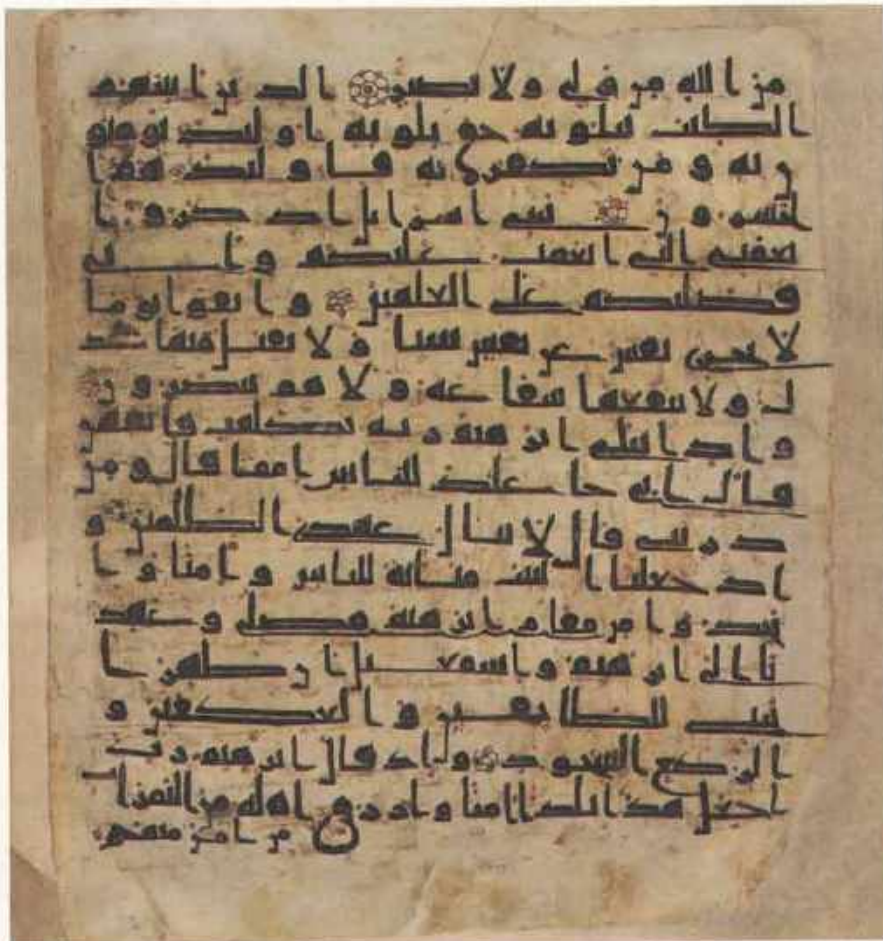 من الله من ولي ولا نصير الذين اتينهم
الكتب يتلونه حق تلوته اولئك يومنو
ن به ومن يكفر به فاولئك هم ا
لخسرون يبني اسرايل اذكروا
نعمتي التي انعمت عليكم واني
فضلتكم على العلمين واتقوا يوما
لا تجزي نفس عن نفس شيا ولا يقبل منها عد
ل ولا تنفعها شفاعة ولا هم ينصرون
واذ ابتلى ابرهم ربه بكلمت فاتمهن
قال اني جاعلك للناس امما قال ومن
ذريتي قال لا ينال عهدي الظلمين و
اذ جعلنا البيت مثابة للناس وامنا وا
تخذوا من مقام ابرهم مصلى وعهد
نا الى ابرهم واسمعيل ان طهرا
بيتي للطايفين والعكفين و
الركع السجود واذ قال ابرهم رب
اجعل هذا بلدا امنا وارزق اهله من الثمرت
من امن منهم